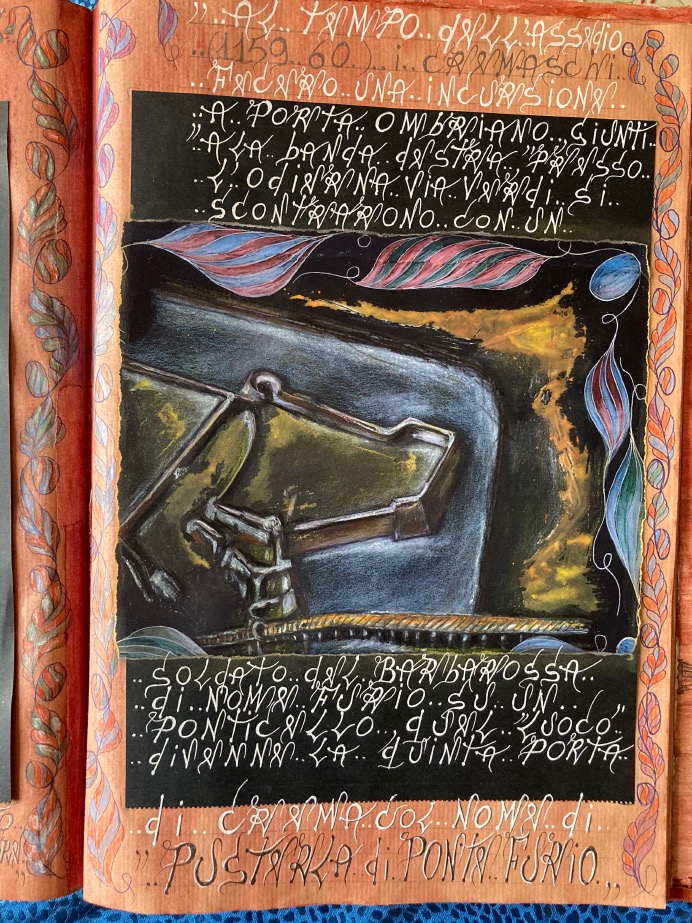 "..AL TEMPO..dELL'ASSEdio..
..(1159..60.)..i..CREMASCHi..
FECERO..UNA..iNCURSiONE..
..A..PORTA..OMBRIANO..GiUNTi..
"ALLA bANdA dESTRA "PRESSO..
..L'OdiERNA ViA VERdi..Si..
..SCONTRARONO..CON..UN..
..SOLdATO..dEL BARbAROSSA..
..di NOME FURiO..SU..UN..
..PONTiCELLO..QUEL "LUOGO"
..diVENNE LA..QUiNTA PORTA..
..di..CREMA COL NOME di..
"PUSTERLA di PONTE FURiO..,,